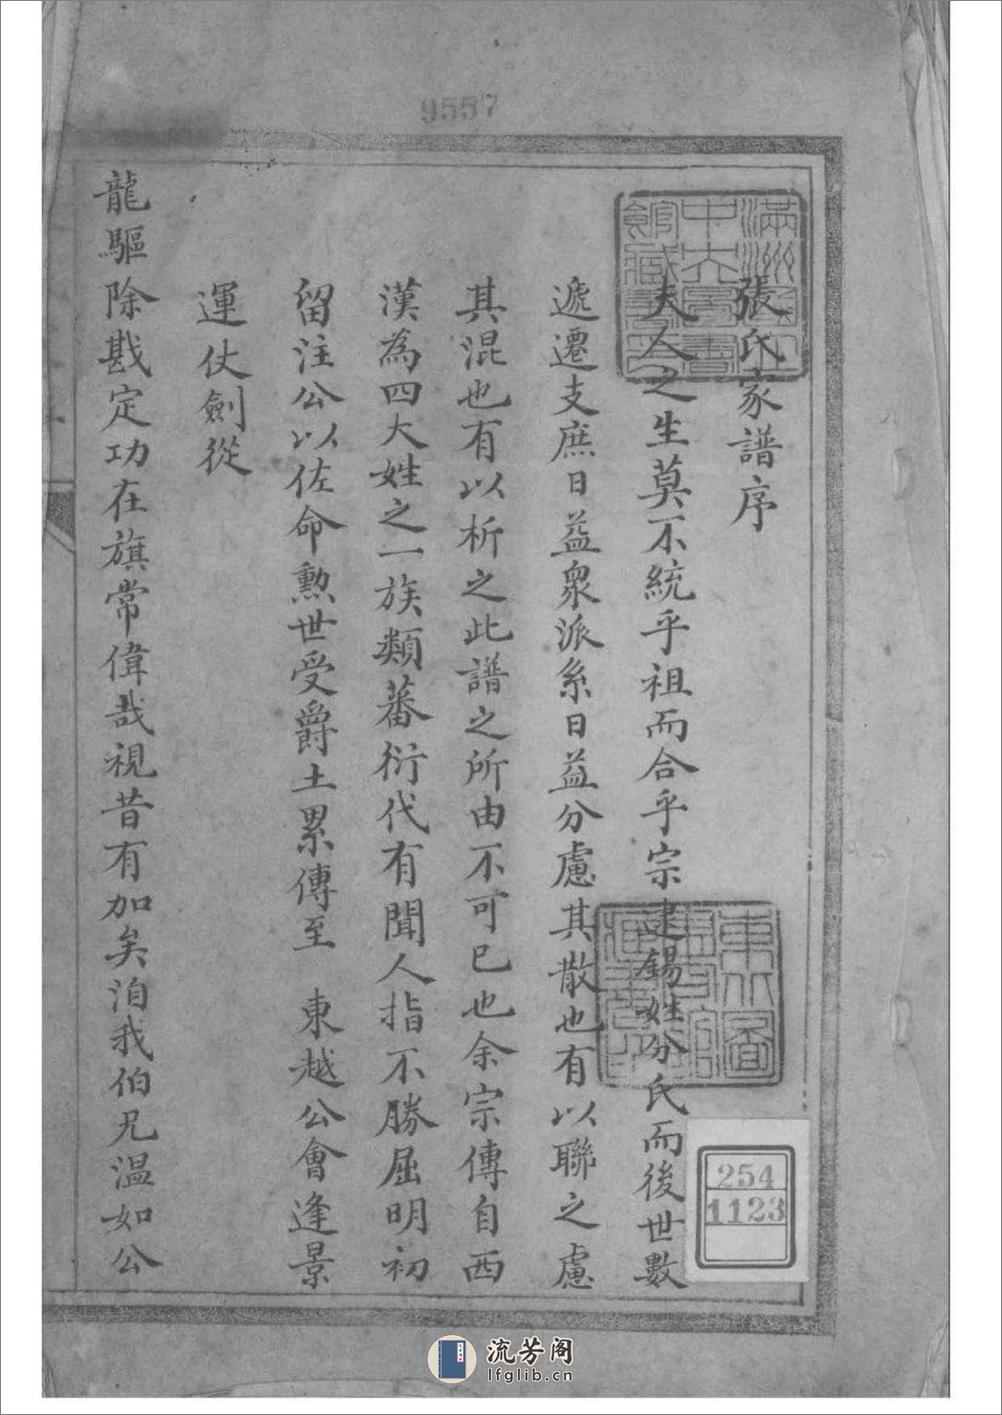 9557
張氏家譜序
夫人之生莫不統乎祖而合乎宗建錫姓分氏而後世數
遞遷支庶日益眾派系日益分慮其散也有以聯之慮
其混也有以析之此譜之所由不可已也余宗傳自西
漢為四大姓之一族類蕃衍代有聞人指不勝屈明初
留注公以佐命勳世受爵土累傳至 東越公會逢景
運仗劍從
龍驅除戡定功在旗常偉哉視昔有加矣洎我伯兄溫如公
254
1123
流芳阁
lfglib.cn